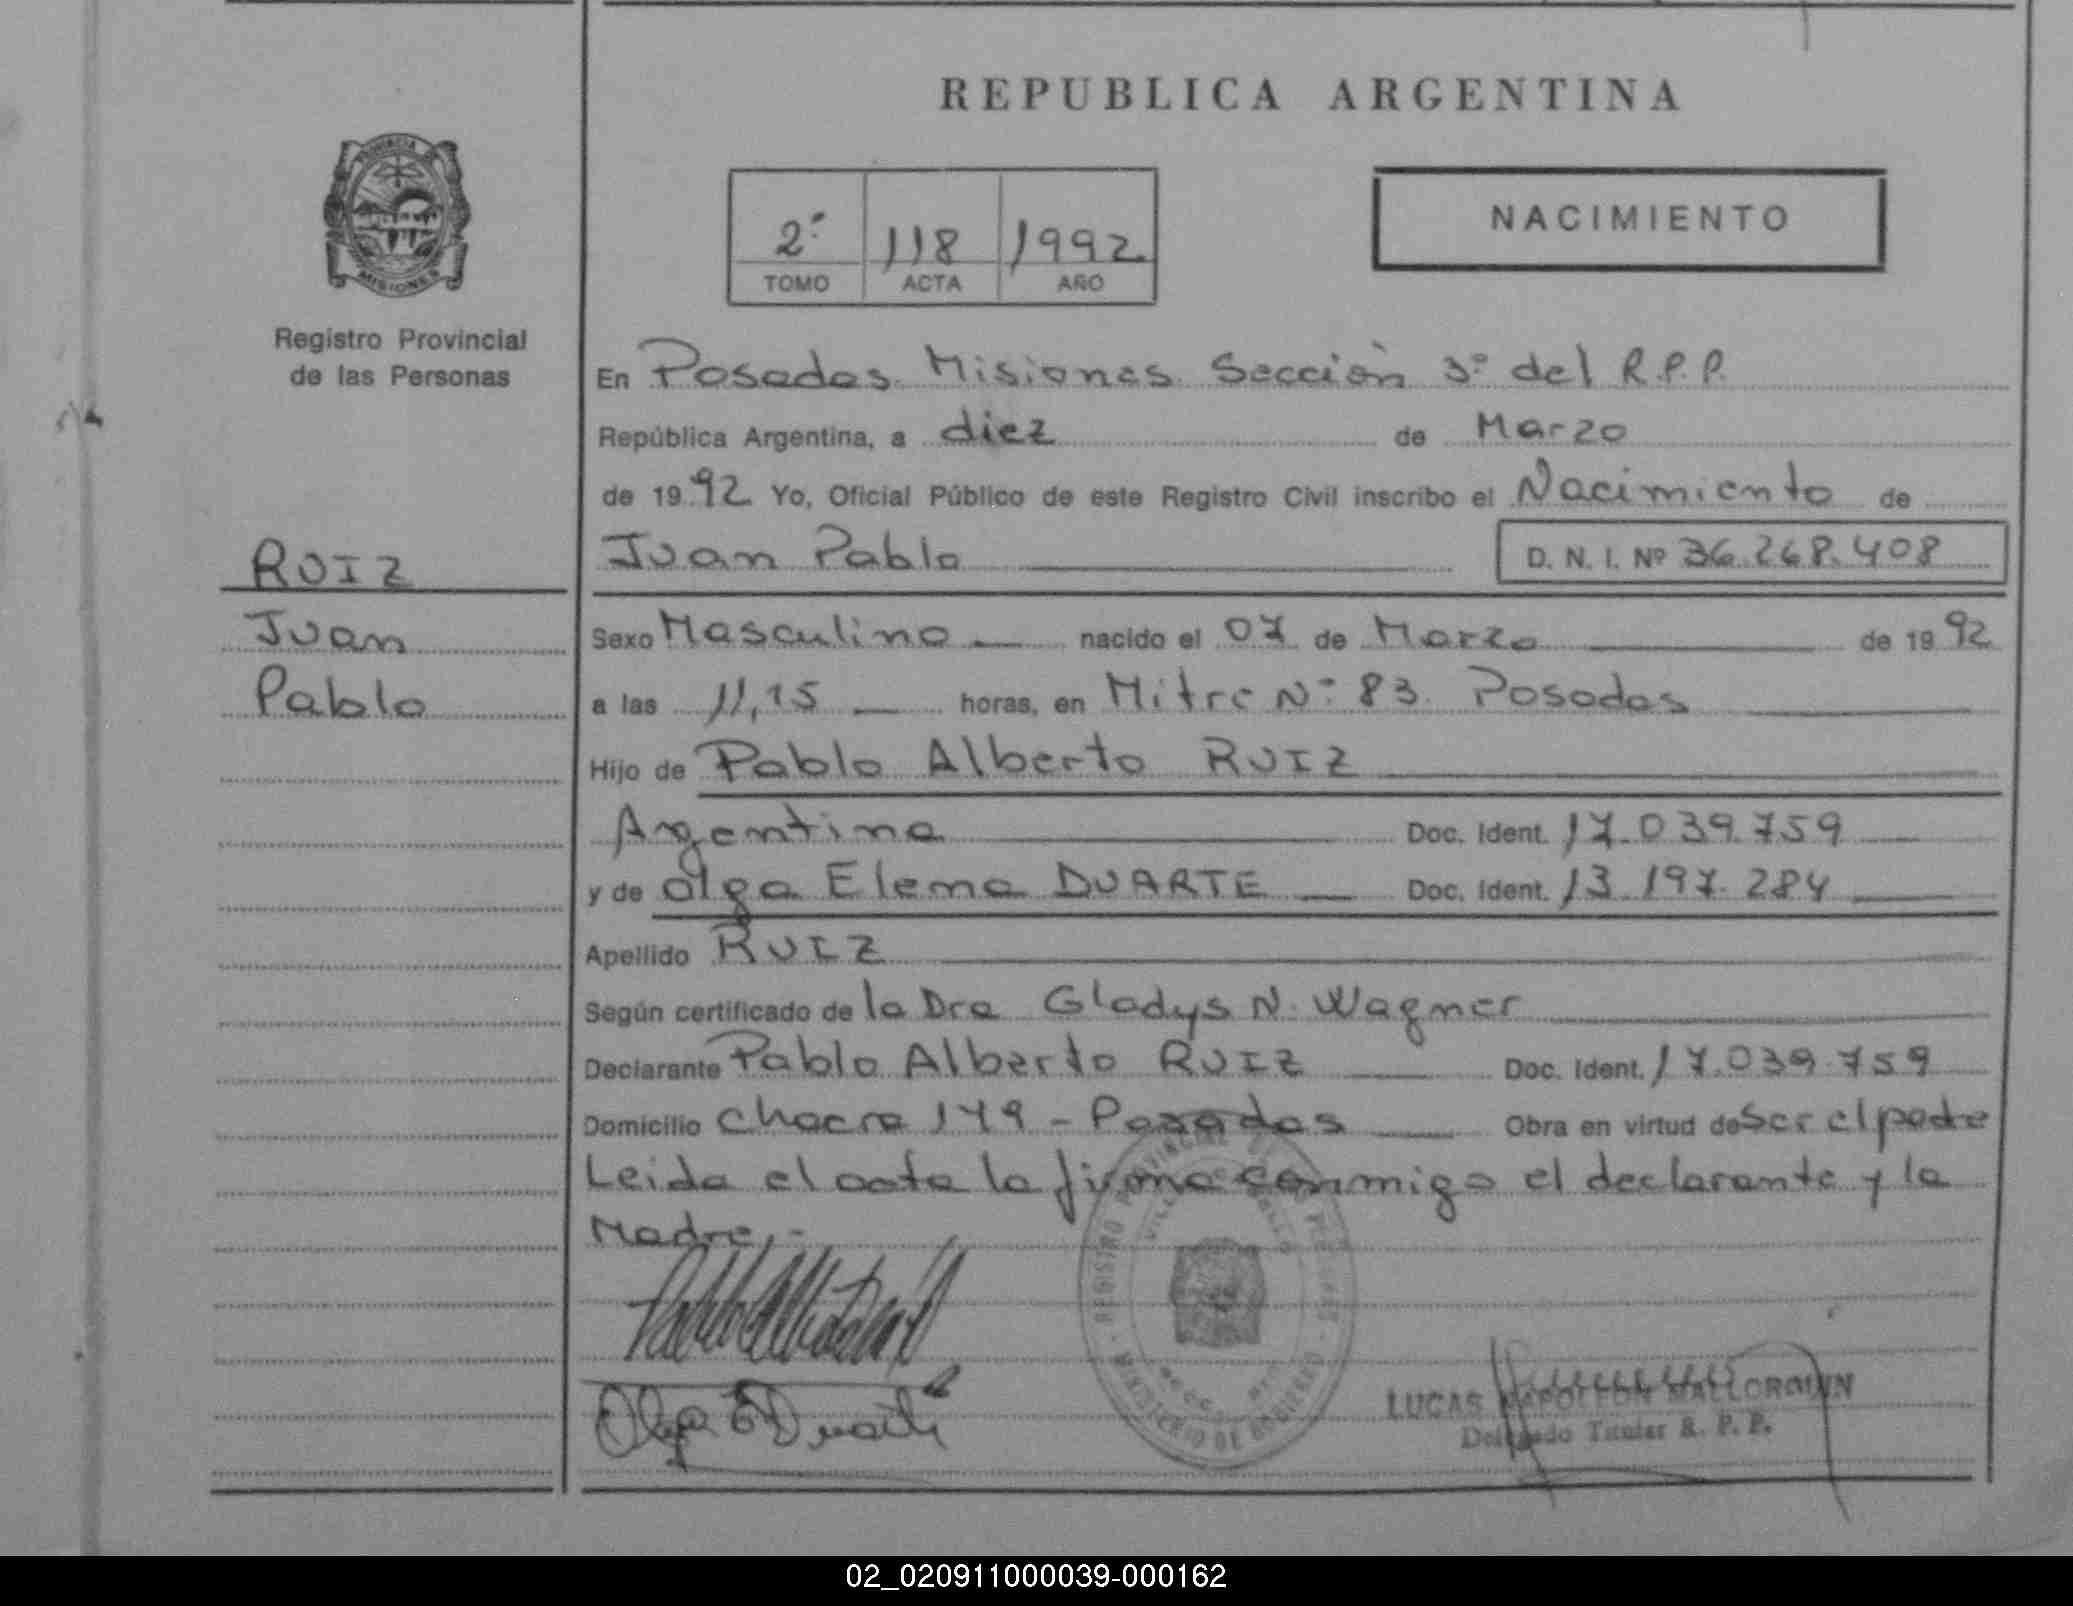 REPUBLICA ARGENTINA
PROVINCIA DE
MISIONES
Registro Provincial
de las Personas
2º 118 1992
TOMO ACTA AÑO
NACIMIENTO
RUIZ
Juan
Pablo
En Posadas Misiones Sección 3º del R.P.P.
República Argentina, a diez de Marzo
de 1992 Yo, Oficial Público de este Registro Civil inscribo el Nacimiento de
Juan Pablo D. N. I. Nº 36.268.408
Sexo Masculino nacido el 07 de Marzo de 1992
a las 11,15 horas, en Mitre Nº 83. Posadas
Hijo de Pablo Alberto RUIZ
Argentina Doc. Ident. 17.039.759
y de Olga Elena DUARTE Doc. Ident. 13.197.284
Apellido RUIZ
Según certificado de la Dra Gladys N. Wagner
Declarante Pablo Alberto RUIZ Doc. Ident. 17.039.759
Domicilio Chacra 149 - Posadas Obra en virtud de Ser el padre
Leida el acta la firma conmigo el declarante y la
Madre.-
REGISTRO PROVINCIAL DE LAS PERSONAS
MINISTERIO DE GOBIERNO
Olga E Duarte
LUCAS NAPOLEON MALLORQUIN
Delegado Titular R. P. P.
02_020911000039-000162